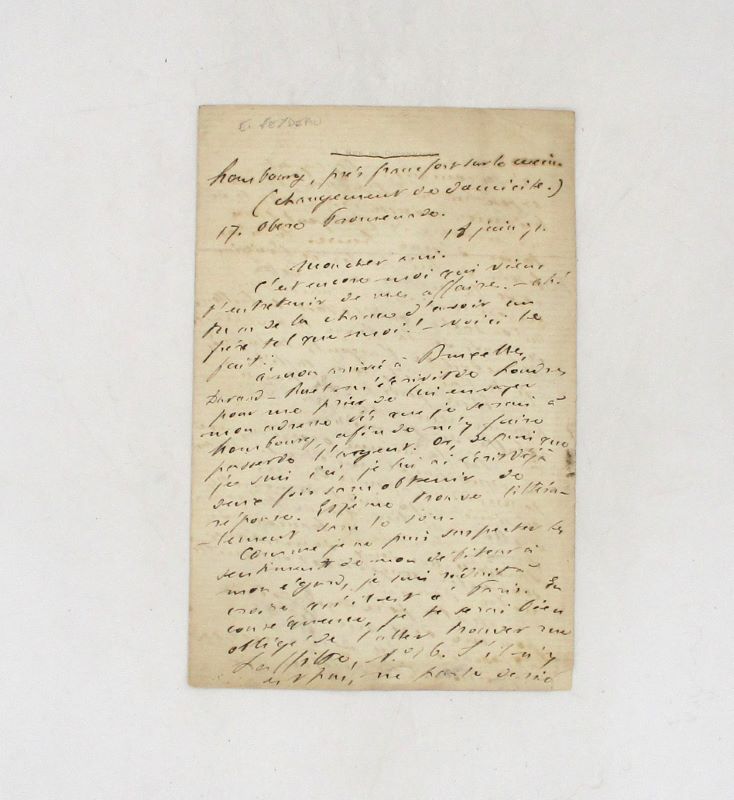 E. FEYDEAU
hombourg, près francfort sur le mein
(changement de domicile.)
17. Obere Promenade.
18 juin 71.
Mon cher ami.
C'est encore moi qui viens
t'entretenir de mes affaires.
tu as de la chance d'avoir un
père tel que moi! – voici le
fait:
à mon arrivée à Bruxelles,
Durand-Ruel m'écrivit de Londres
pour me prier de lui envoyer
mon adresse dès que je serai à
hombourg, afin de m'y faire
passer de l'argent. Or, depuis que
je suis ici, je lui ai écrit déjà
deux fois sans obtenir de
réponse. Et je me trouve littéra-
-lement sans le sou.
Comme je ne puis suspecter les
sentiments de mon débiteur à
mon égard, je suis réduit à
croire qu'il est à Paris. En
conséquence, je te serai bien
obligé de l'aller trouver rue
Laffitte, n° 16. S'il n'y
est pas, ne parle de rien